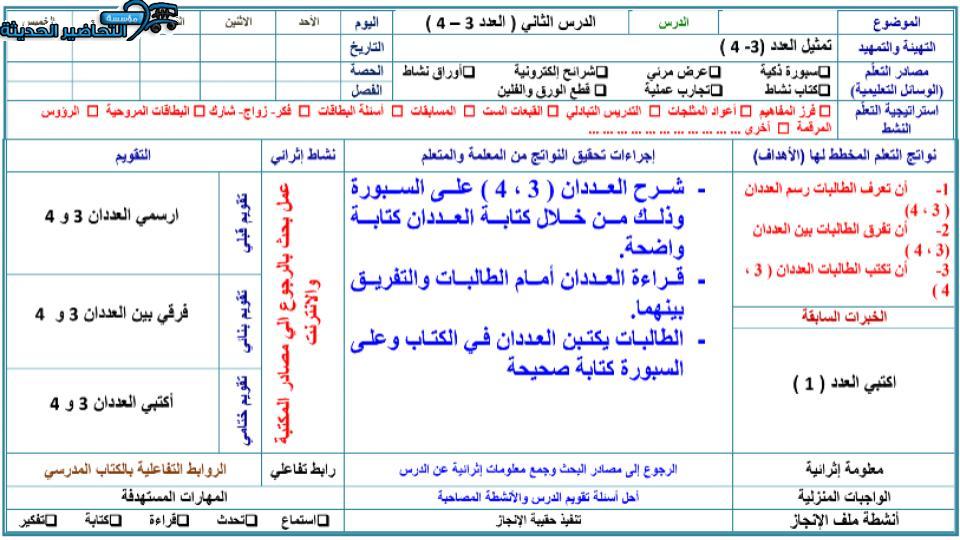 مؤسسة
التحاضير الحديثة
الموضوع
الدرس
الدرس الثاني ( العدد 3 – 4 )
اليوم
الأحد
الاثنين
الخميس
التهيئة والتمهيد
تمثيل العدد (3- 4 )
التاريخ
مصادر التعلّم
(الوسائل التعليمية)
سبورة ذكية
عرض مرئي
شرائح إلكترونية
أوراق نشاط
كتاب نشاط
تجارب عملية
قطع الورق والفلين
الحصة
الفصل
استراتيجية التعلّم
النشط
فرز المفاهيم
أعواد المثلجات
التدريس التبادلي
القبعات الست
المسابقات
أسئلة البطاقات
فكر- زواج- شارك
البطاقات المروحية
الرؤوس
المرقمة
أخرى ... ... ... ... ... ... ... ... ... ... ...
نواتج التعلم المخطط لها (الأهداف)
إجراءات تحقيق النواتج من المعلمة والمتعلم
نشاط إثرائي
التقويم
1- أن تعرف الطالبات رسم العددان
( 3 ،4)
2- أن تفرق الطالبات بين العددان
(3 ، 4 )
3- أن تكتب الطالبات العددان ( 3 ،
4 )
الخبرات السابقة
اكتبي العدد ( 1 )
- شرح العددان ( 3 ، 4 ) على السبورة
وذلك من خلال كتابة العددان كتابة
واضحة.
- قراءة العددان أمام الطالبات والتفريق
بينهما.
- الطالبات يكتبن العددان في الكتاب وعلى
السبورة كتابة صحيحة
عمل بحث بالرجوع الي مصادر المكتبة
والانترنت
تقويم قبلي
ارسمي العددان 3 و 4
تقويم بنائي
فرقي بين العددان 3 و 4
تقويم ختامي
أكتبي العددان 3 و 4
معلومة إثرائية
الرجوع إلى مصادر البحث وجمع معلومات إثرائية عن الدرس
رابط تفاعلي
الروابط التفاعلية بالكتاب المدرسي
الواجبات المنزلية
أحل أسئلة تقويم الدرس والأنشطة المصاحبة
المهارات المستهدفة
أنشطة ملف الإنجاز
تنفيذ حقيبة الإنجاز
استماع
تحدث
قراءة
كتابة
تفكير